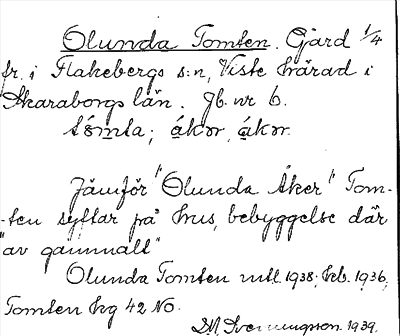 Olunda Tomten. Gård 1/4
fr. i Flakebergs s:n, Viste härad i
Skaraborgs län. Jb. nr 6.
tómta; ákər, ákər.
Jämför "Olunda Åker" Tom-
-ten syftar på hus, bebyggelse där
"av gammalt"
Olunda Tomten mtl. 1938; Feb. 1936,
Tomten hg 42 NO.
1939.